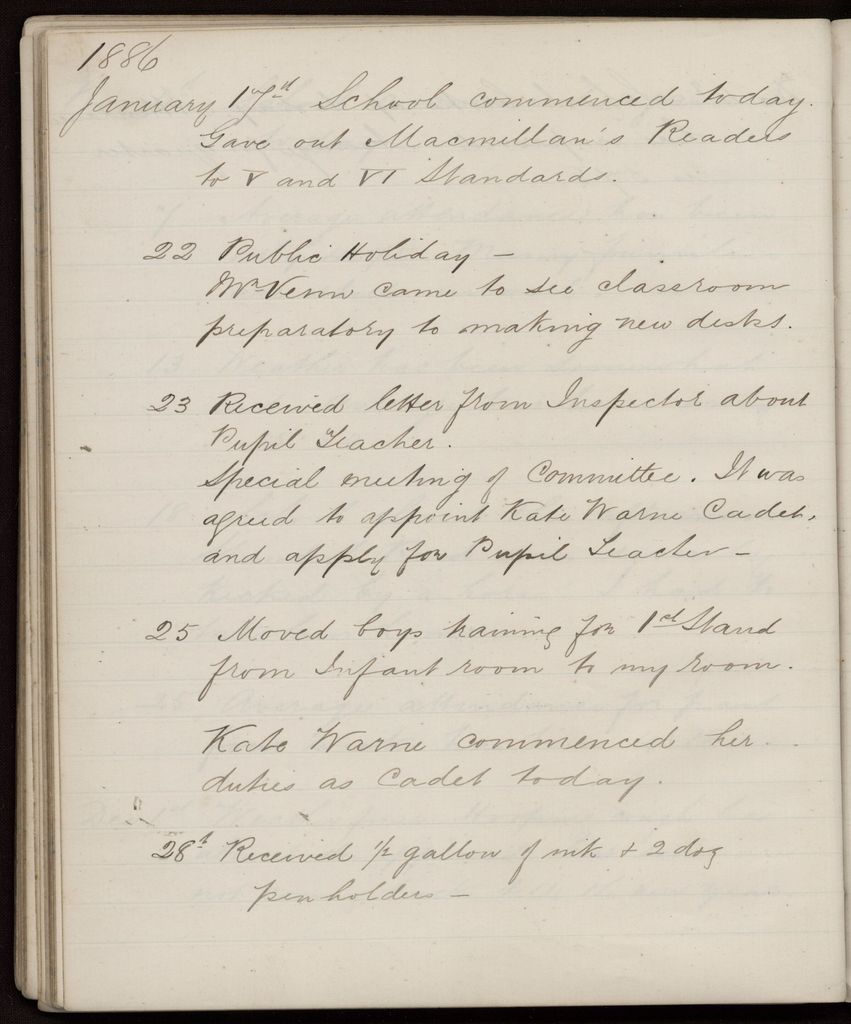 1886
January 17th School commenced today.
Gave out Macmillan's Readers
to V and VI Standards.
22 Public Holiday –
Mr Venn came to see classroom
preparatory to making new desks.
23 Received letter from Inspector about
Pupil Teacher.
Special meeting of Committee. It was
agreed to appoint Kate Warne Cadet,
and apply for Pupil Teacher –
25 Moved boys training for 1st Stand
from Infant room to my room.
Kate Warne commenced her
duties as Cadet today.
28th Received 1/2 gallon of ink + 2 doz
penholders –